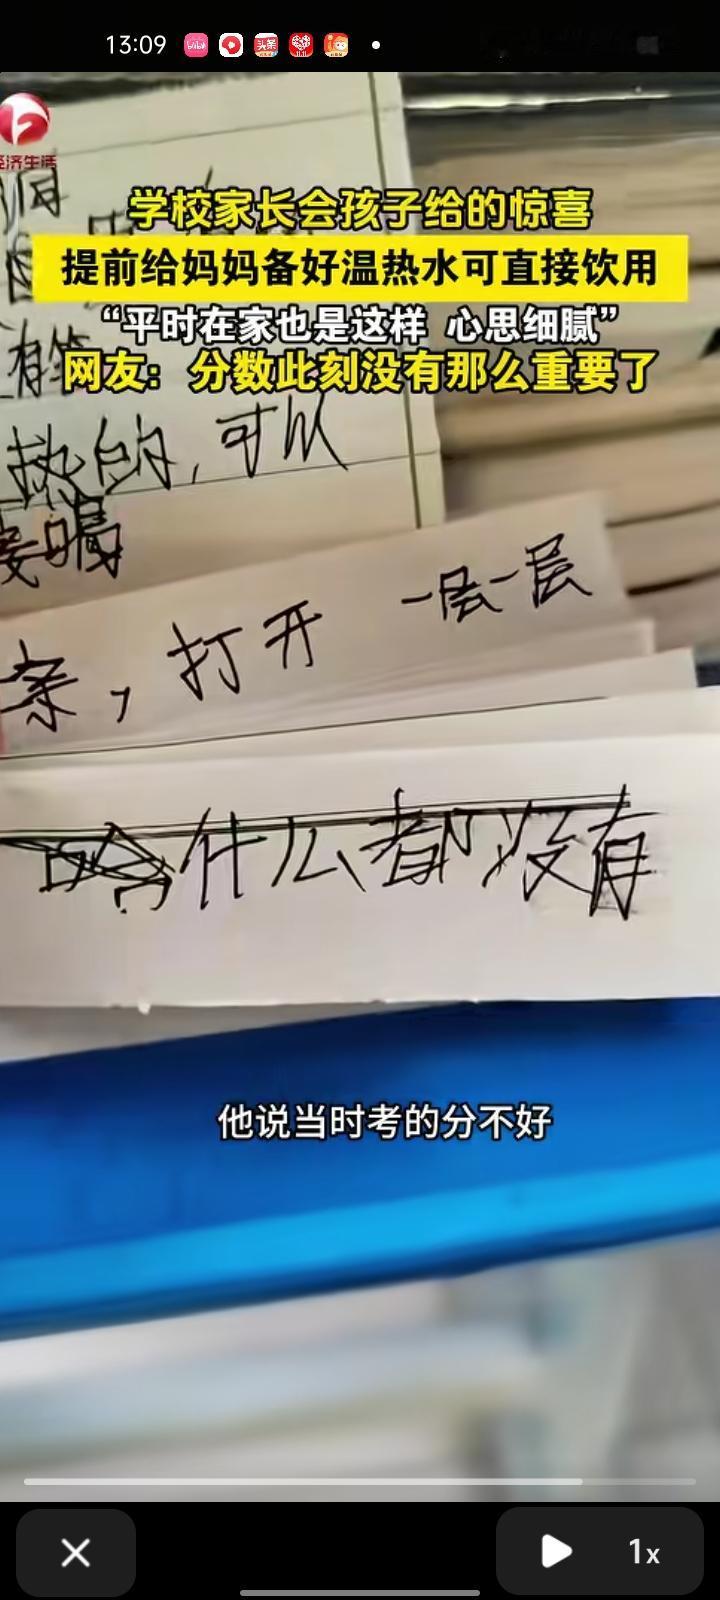 13:09
经济生活
学校家长会孩子给的惊喜
提前给妈妈备好温热水可直接饮用
“平时在家也是这样 心思细腻”
网友：分数此刻没有那么重要了
热的，可以
接喝
亲，打开 一层一层
什么都没有
他说当时考的分不好
1x